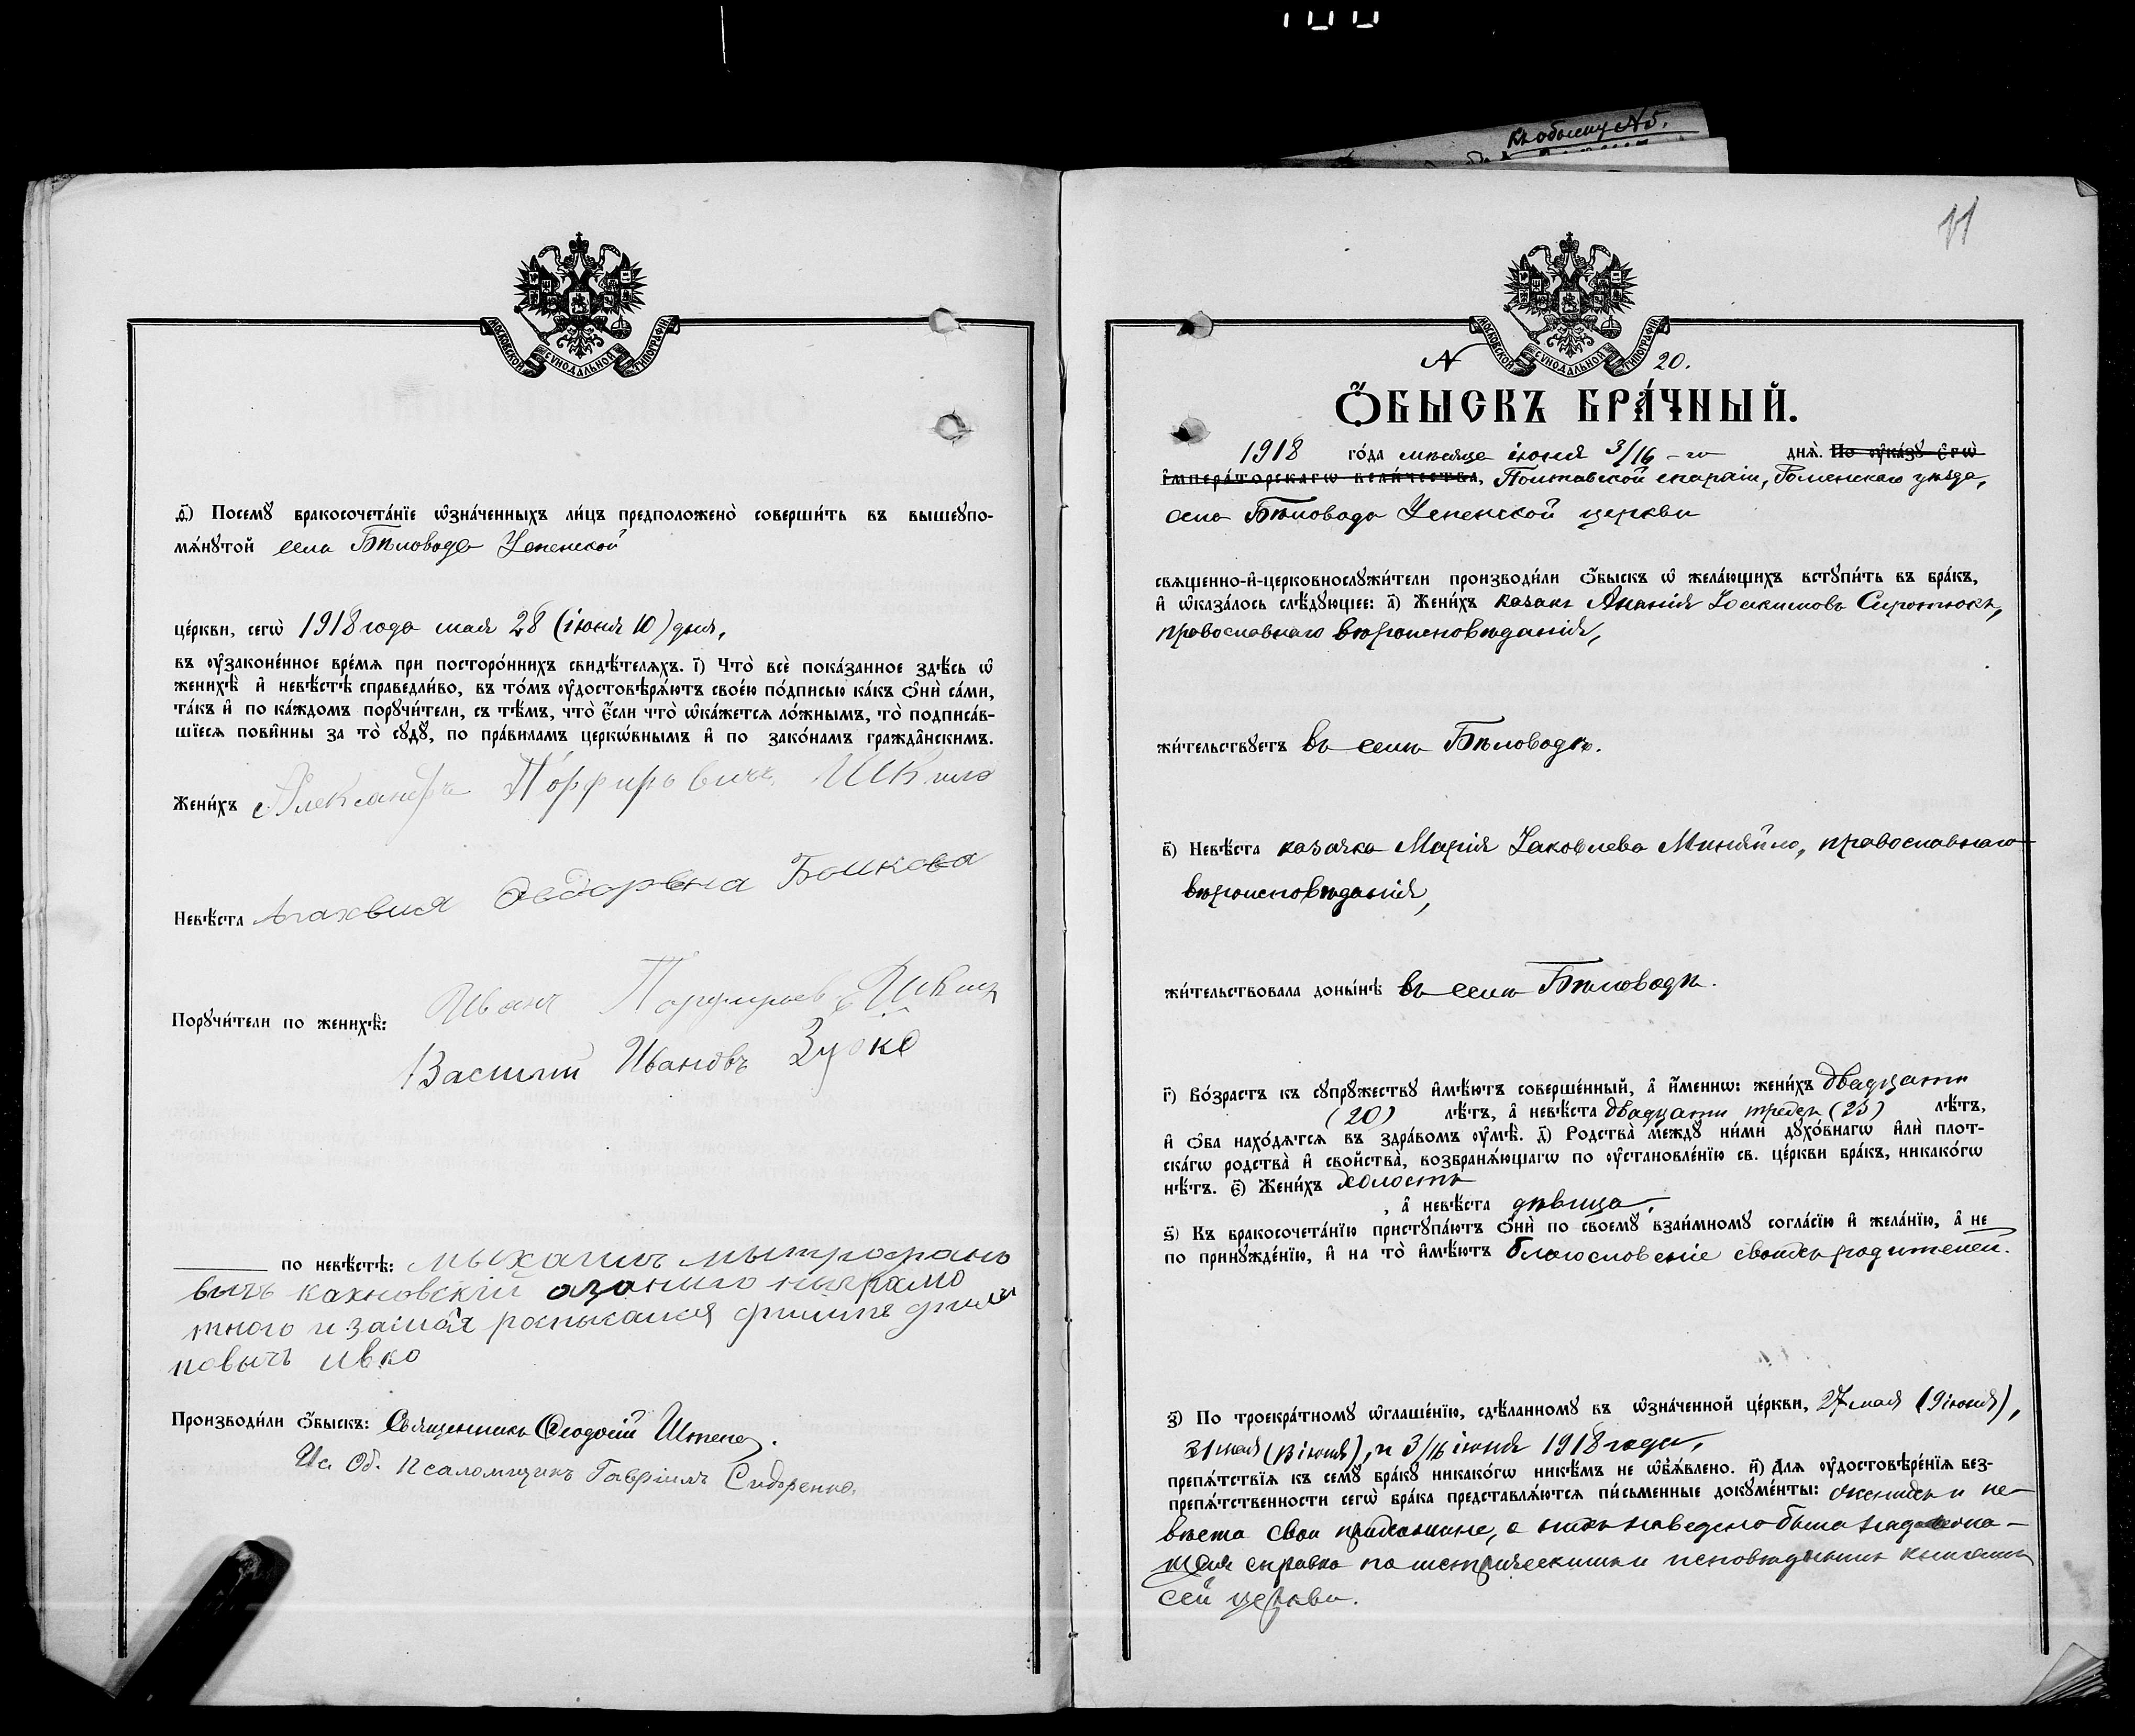 Къ обыску №5.
МОСКОВСКОЙ СѴНОДАЛЬНОЙ ТИПОГРАФІИ
ѳ҃) Посемꙋ̀ бракосочета́нїе ѡ҆зна́ченныхъ ли́цъ предположено̀ соверши́ть въ вышеꙋпо-
мѧ́нꙋтой села Бѣловода Успенской
це́ркви, сегѡ̀ 1918 года мая 28 (іюня 10) дня,
въ ᲂу҆законе́нное вре́мѧ при посторо́ннихъ свидѣ́телѧхъ. і҃) Что̀ всѐ пока́занное здѣ́сь ѡ҆
женихѣ̀ и҆ невѣ́стѣ справедли́во, въ то́мъ ᲂу҆достовѣрѧ́ютъ свое́ю по́дписью ка́къ ѻ҆нѝ са́ми,
та́къ и҆ по ка́ждомъ порꙋчи́тели, съ тѣ́мъ, что̀ є҆́сли что̀ ѡ҆ка́жетсѧ ло́жнымъ, то̀ подписа́в-
шїесѧ пови́нны за то̀ сꙋдꙋ̀, по пра́виламъ церкѡ́внымъ и҆ по зако́намъ гражда́нскимъ.
Жени́хъ Александръ Порфировичъ Шкиля
Невѣ́ста Агахвия Федоровна Бойкова
Порꙋчи́тели по женихѣ̀: Иванъ Порфирьев
Василий Ивановъ
по невѣ́стѣ: мыхаилъ мытрофано
вичъ кахновскій азаниго ниграмо
тного и засибя роспысался филипъ фили
повычъ ивко
Производи́ли ѻ҆́быскъ: Священникъ Ѳеодосій
Ис. Об. Псаломщикъ Гавріилъ Сидоренко.
11
МОСКОВСКОЙ СѴНОДАЛЬНОЙ ТИПОГРАФІИ
№ 20.
Ѻ҆́БЫСКЪ БРА́ЧНЫЙ.
1918 го́да мѣсяца іюня 3/16-го днѧ̀. По ᲂу҆ка́зꙋ Є҆гѡ̀
І҆мпера́торскагѡ вели́чества, Полтавской епархіи, Роменскаго уѣзда,
села Бѣловода Успенской церкви
свѧщенно-и҆-церковнослꙋжи́тели производи́ли ѻ҆́быскъ ѡ҆ жела́ющихъ встꙋпи́ть въ бра́къ,
и҆ ѡ҆каза́лось слѣ́дꙋющее: а҃) Жени́хъ казакъ Ананія Іоакимовъ Сиротюкъ,
православнаго вѣроисповѣданія,
жи́тельствꙋетъ въ селѣ Бѣловодѣ.
в҃) Невѣ́ста казачка Марія Іаковлева Миняйло, православнаго
вѣроисповѣданія,
жи́тельствовала доны́нѣ въ селѣ Бѣловодѣ.
г҃) Во́зрастъ къ сꙋпрꙋ́жествꙋ и҆мѣ́ютъ соверше́нный, а҆ и҆́меннѡ: жени́хъ двадцати
(20) лѣ́тъ, а҆ невѣ́ста двадцати трехъ (23) лѣ́тъ,
и҆ ѻ҆́ба нахо́дѧтсѧ въ здра́вомъ ᲂу҆мѣ̀. д҃) Родства̀ междꙋ̀ ни́ми дꙋхо́внагѡ и҆лѝ плот-
ска́гѡ родства̀ и҆ сво́йства̀, возбранѧ́ющагѡ по ᲂу҆становле́нїю св. це́ркви бра́къ, никако́гѡ
нѣ́тъ. є҃) Жени́хъ холостъ
, а҆ невѣ́ста дѣвица,
ѕ҃) Къ бракосочета́нїю пристꙋпа́ютъ ѻ҆нѝ по своемꙋ̀ взаи́мномꙋ согла́сїю и҆ жела́нїю, а҆ не
по принꙋжде́нїю, и҆ на то̀ и҆мѣ́ютъ благословеніе своихъ родителей.
з҃) По троекра́тномꙋ ѡ҆глаше́нїю, сдѣ́ланномꙋ въ ѡ҆зна́ченной це́ркви, 27 мая (9 іюня),
31 мая (13 іюня), и 3/16 іюня 1918 года,
препѧ́тствїѧ къ семꙋ̀ бра́кꙋ никако́гѡ никѣ́мъ не ѡ҆бъѧ́влено. и҃) Длѧ ᲂу҆достовѣре́нїѧ без-
препѧ́тственности сегѡ̀ бра́ка представлѧ́ютсѧ пи́сьменные докꙋме́нты: Женихъ и не-
вѣста свои прихожане, о нихъ наведена была надлежа-
щая справка по метрическимъ и исповѣднымъ книгамъ
сей церкви.